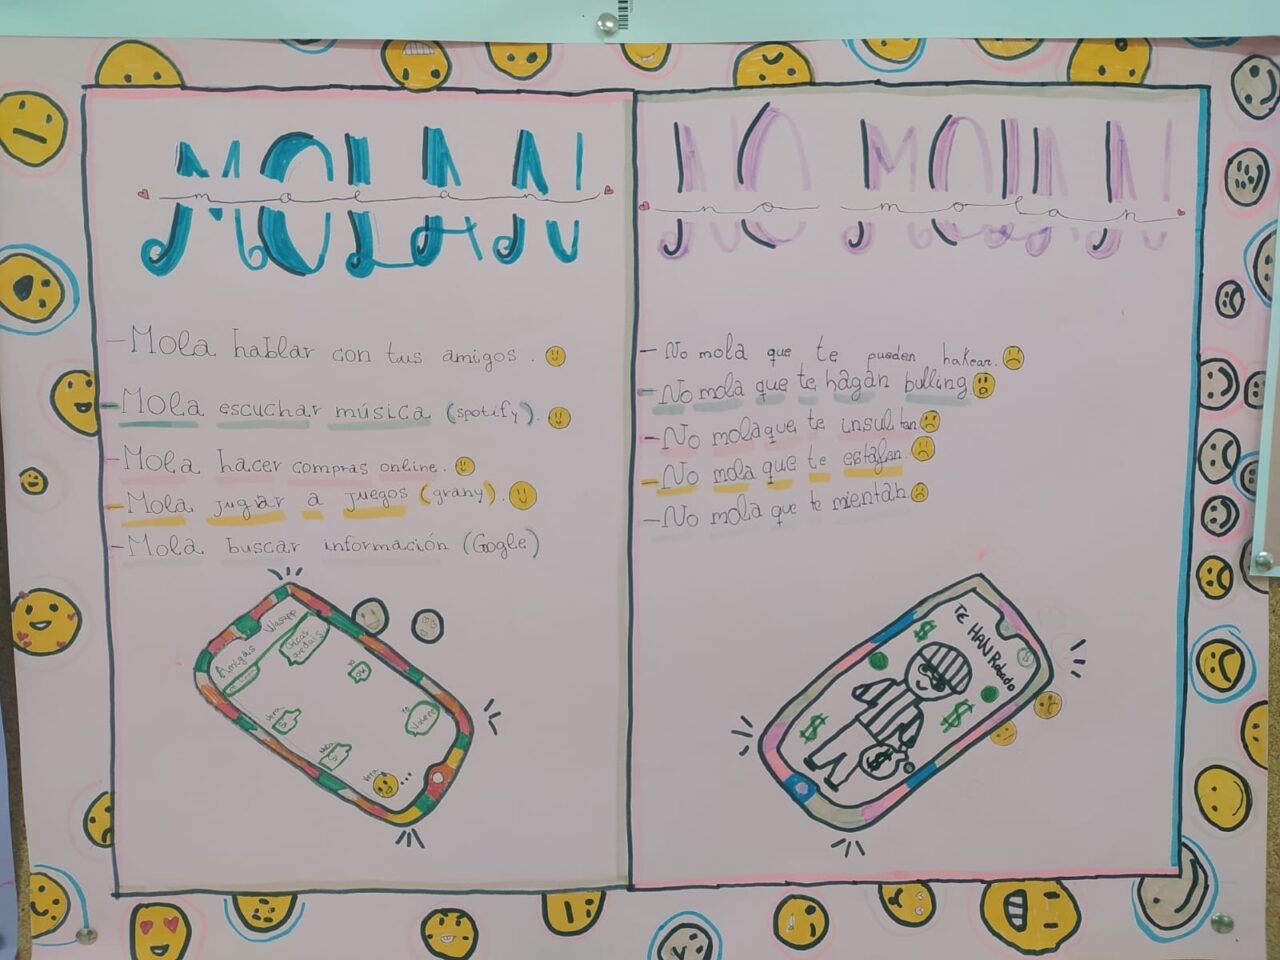 MOLAN
molan
- Mola hablar con tus amigos.
- Mola escuchar música (spotify).
- Mola hacer compras online.
- Mola jugar a juegos (grany).
- Mola buscar información (Gogle)
Wasapp
Amigas
Chicas
quedais
Yo
OK
Vera
Si
Si
Yo
Vera
NO MOLAN
no molan
- No mola que te pueden hakear.
- No mola que te hagan bulling.
- No mola que te insultan
- No mola que te estafen.
- No mola que te mientan
TE HAN Robado
$
$
$
$